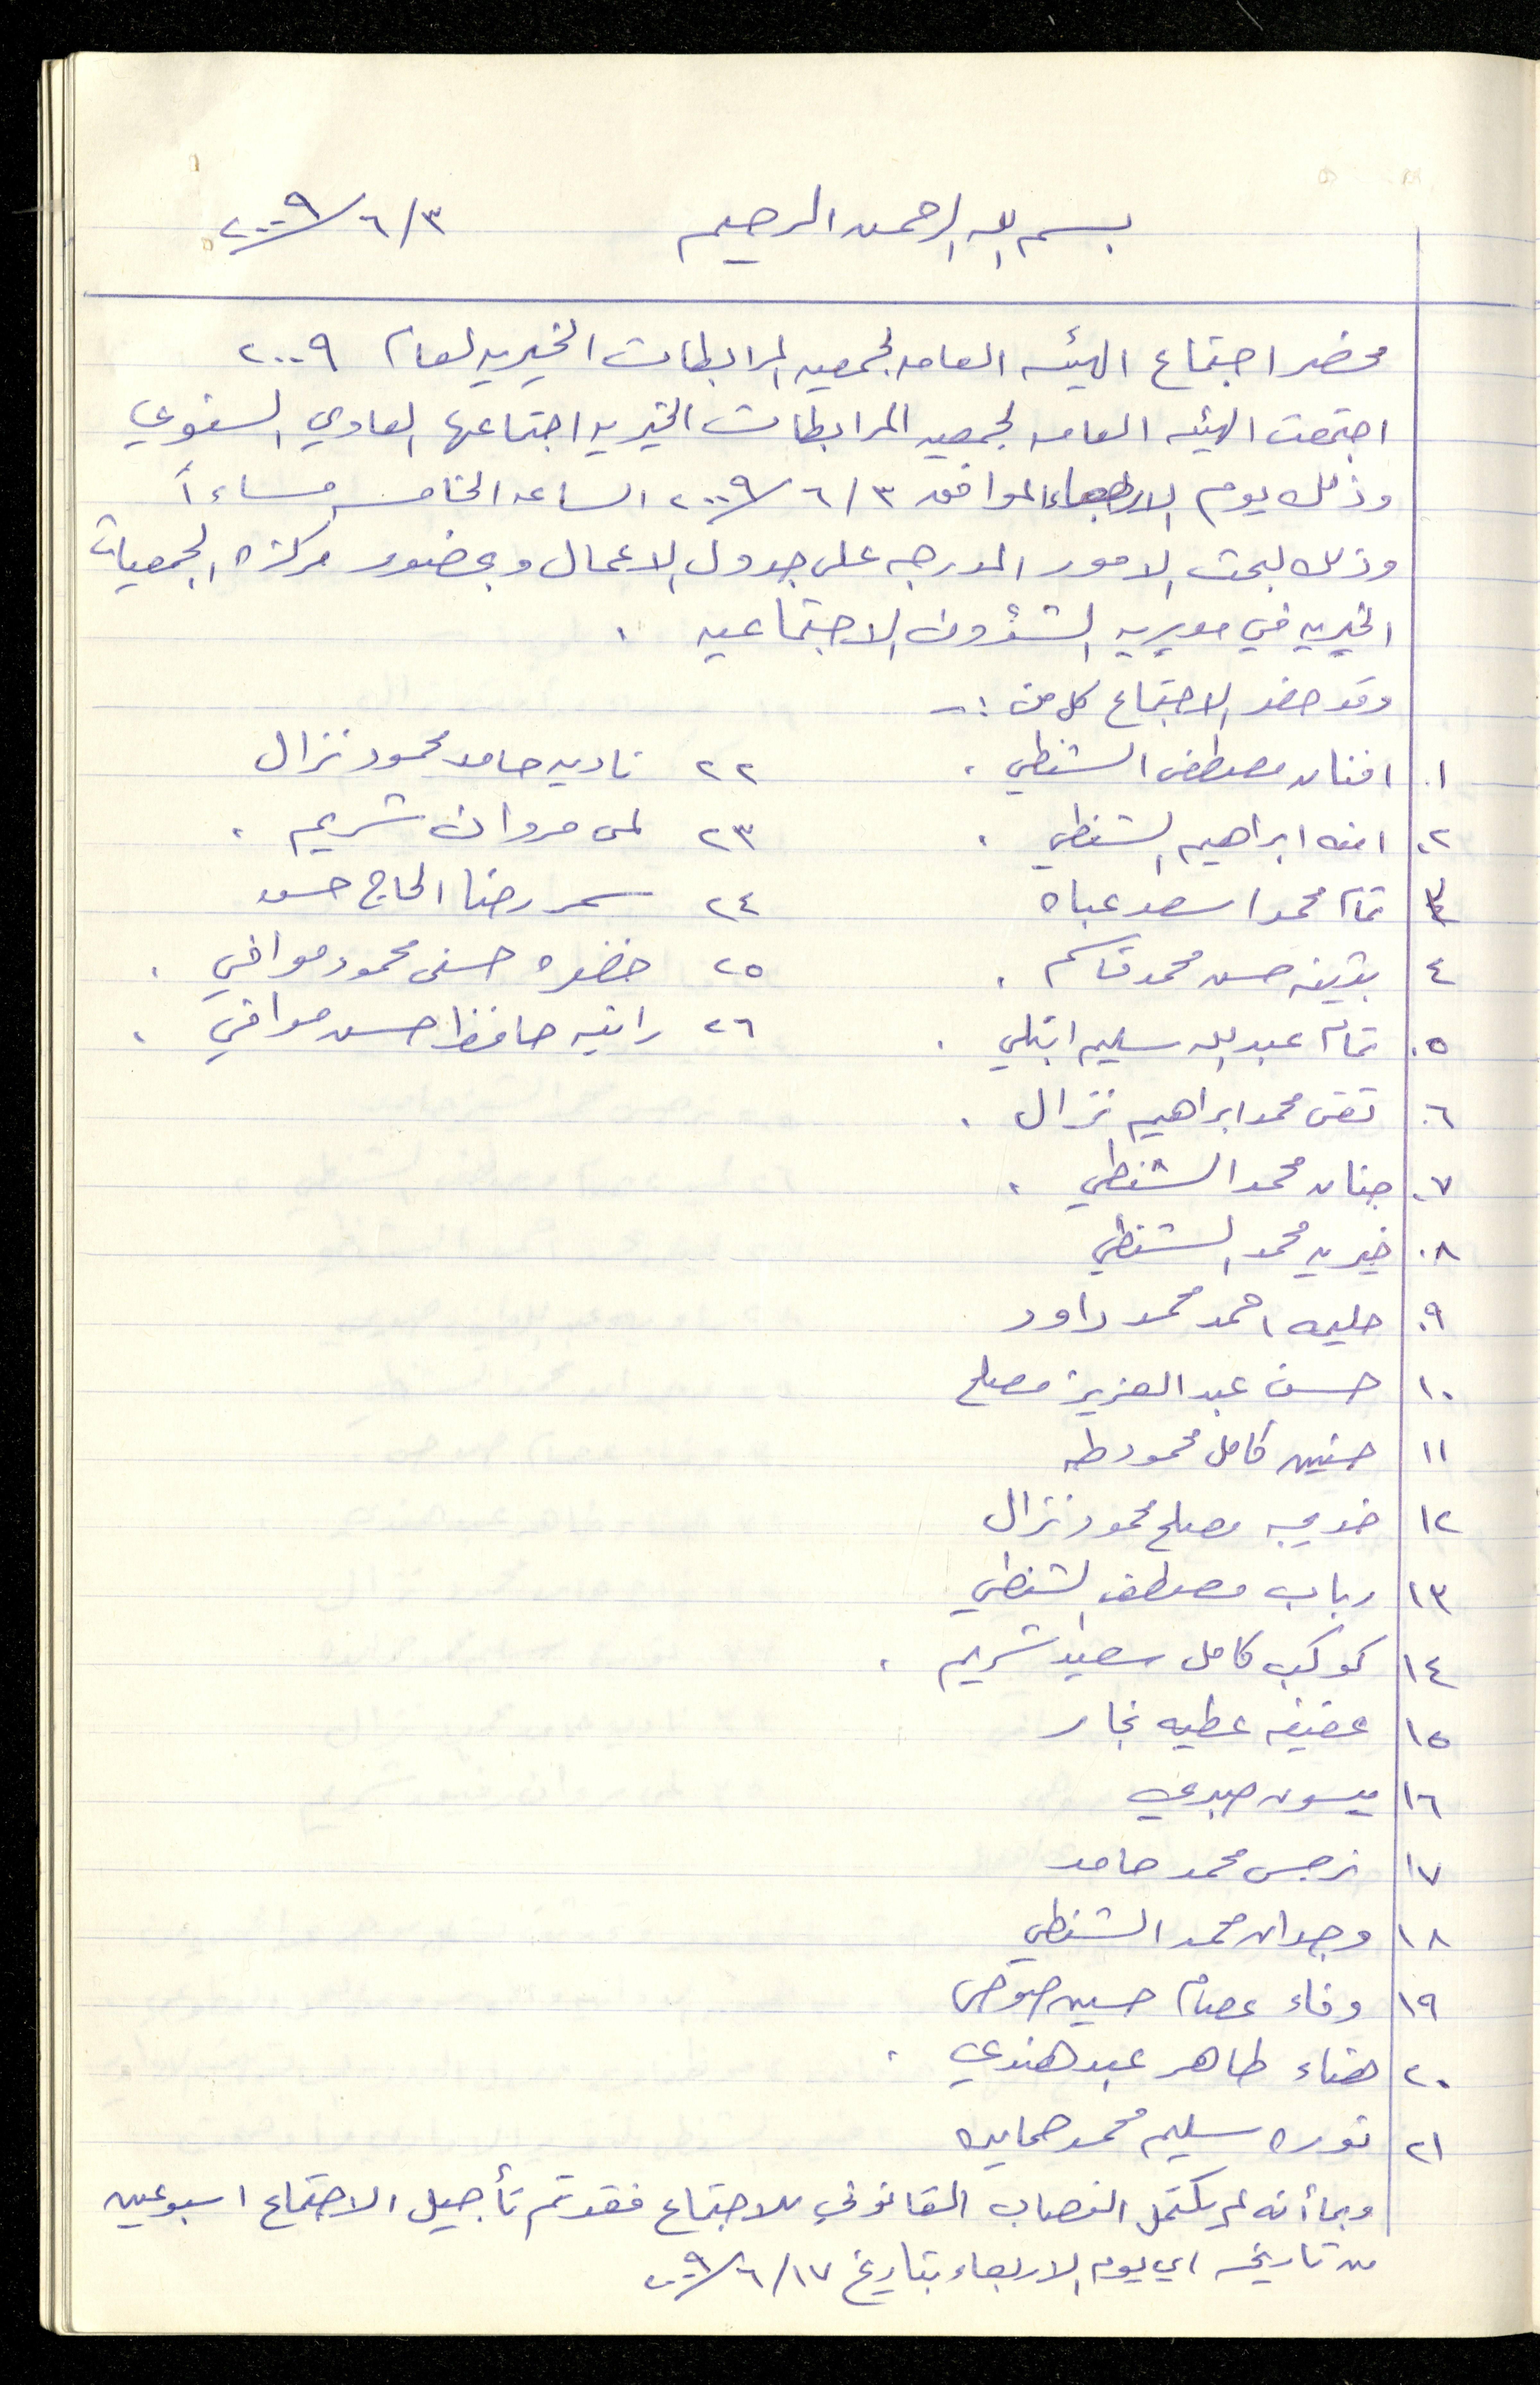 بسم الله الرحمن الرحيم ٢٠٠٩/٦/٣
محضر اجتماع الهيئه العامه لجمعيه المرابطات الخيريه لعام ٢٠٠٩
اجتمعت الهيئه العامه لجمعيه المرابطات الخيريه اجتماعها العادي السنوي
وذلك يوم الاربعاء الموافق ٢٠٠٩/٦/٣ الساعه الخامسه مساءاً
وذلك لبحث الامور المدرجه على جدول الاعمال وبحضور مركزة الجمعيات
الخيريه في مديريه الشؤون الاجتماعيه .
وقد حضر الاجتماع كل من :-
١. افنان مصطفى الشنطي .
٢. امنه ابراهيم الشنطي .
٣ تمام محمد اسعد عباه
٤ بثينه حسن محمد قاسم .
٥. تمام عبد الله سليم ابتلي .
٦. تقى محمد ابراهيم نزال .
٧. جنان محمد الشنطي .
٨. خيريه محمد الشنطي
٩. حليمه احمد محمد داود
١٠ حسن عبد العزيز مصلح
١١ حنين كامل محمود طه
١٢ خديجه مصلح محمود نزال
١٣ رباب مصطفى الشنطي
١٤ كوكب كامل سعيد شريم .
١٥ عفيفه عطيه نجار
١٦ ميسون صبري
١٧ نرجس محمد حامد
١٨ وجدان محمد الشنطي
١٩ وفاء عصام حسين صوص
٢٠ هناء طاهر عبد هندي .
٢١ نوره سليم محمد حمايده
٢٢ ناديه حامد محمود نزال
٢٣ لمى مروان شريم .
٢٤ سمر رضا الحاج حسن
٢٥ خضره حسني محمود موافي .
٢٦ رانيه حافظ حسن موافي .
وبما أنه لم يكتمل النصاب القانوني للاجتماع فقد تم تأجيل الاجتماع اسبوعين
من تاريخه اي يوم الاربعاء بتاريخ ٢٠٠٩/٦/١٧